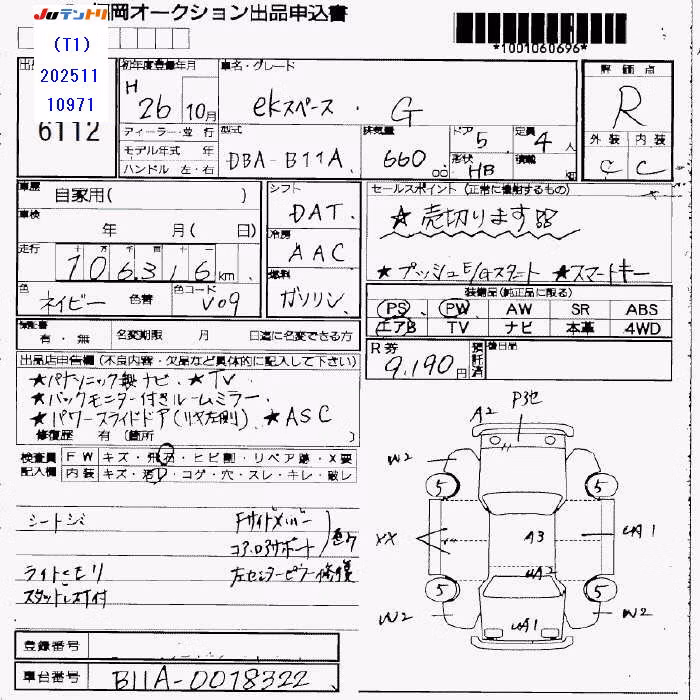 JUテントリ
岡オークション出品申込書
*1001060696*
(T1)
202511
10971
6112
初年度登録年月
H 26 10月
車名・グレード
ekスペース . G
評価点
R
外装 内装
C C
ディーラー・並行
モデル年式 年
ハンドル 左・右
型式
DBA-B11A
排気量
660 cc
ドア
5
形状
HB
定員
4 人
積載 kg
車歴
自家用( )
車検
年 月( 日)
走行
106316 km
色
ネイビー 色替
色コード
V09
シフト
DAT.
冷房
AAC
燃料
ガソリン
セールスポイント (正常に機能するもの)
★売切ります
★プッシュE/Gスタート ★スマートキー
装備品(純正品に限る)
PS PW AW SR ABS
エアB TV ナビ 本革 4WD
保証書
有・無
名変期限 月 日迄に名変できる方
R券
9,190円
預託済
後日品
出品店申告欄 (不良内容・欠品など具体的に記入して下さい)
★パナソニック製ナビ. ★TV
★バックモニター付きルームミラー.
★パワースライドドア(リヤ左側) ★ASC
修復歴 有 (箇所 )
検査員
記入欄
FW キズ・飛石・ヒビ割・リペア跡・X要
内装 キズ・汚・コゲ・穴・スレ・キレ・破レ
シートシミ
ライトくもり
スタッドレス付
Fサイドメンバー
コア.ロアサポート
左センターピラー修復
A2
W2
W2
5
5
XX
A3
UA1
UA2
5
5
W2
W2
UA1
登録番号
車台番号
B11A-0078322